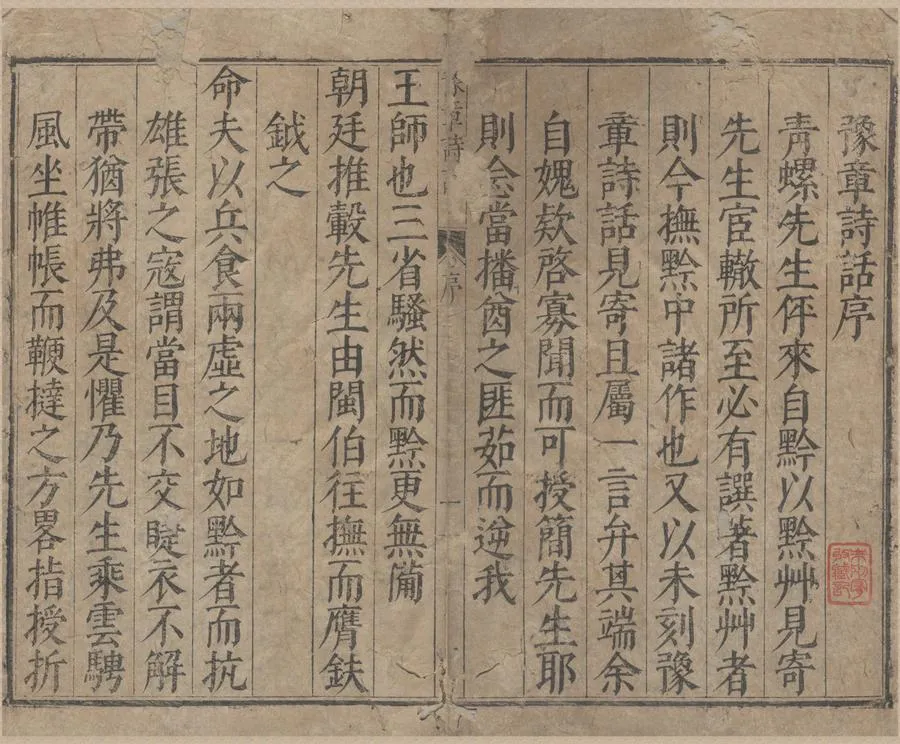 豫章詩話序
青螺先生伻來自黔以黔艸見寄
先生宦轍所至必有譔著黔艸者
則今撫黔中諸作也又以未刻豫
章詩話見寄且屬一言弁其端余
自媿欵啓寡聞而可授簡先生耶
則念當播酋之匪茹而逆我
王師也三省騷然而黔更無備
朝廷推轂先生由閩伯往撫而膺鈇
鉞之
命夫以兵食兩虛之地如黔者而抗
雄張之寇謂當目不交睫衣不解
帶猶將弗及是懼乃先生乘雲騁
風坐帷帳而鞭撻之方畧指授折
豫章詩話
序
一